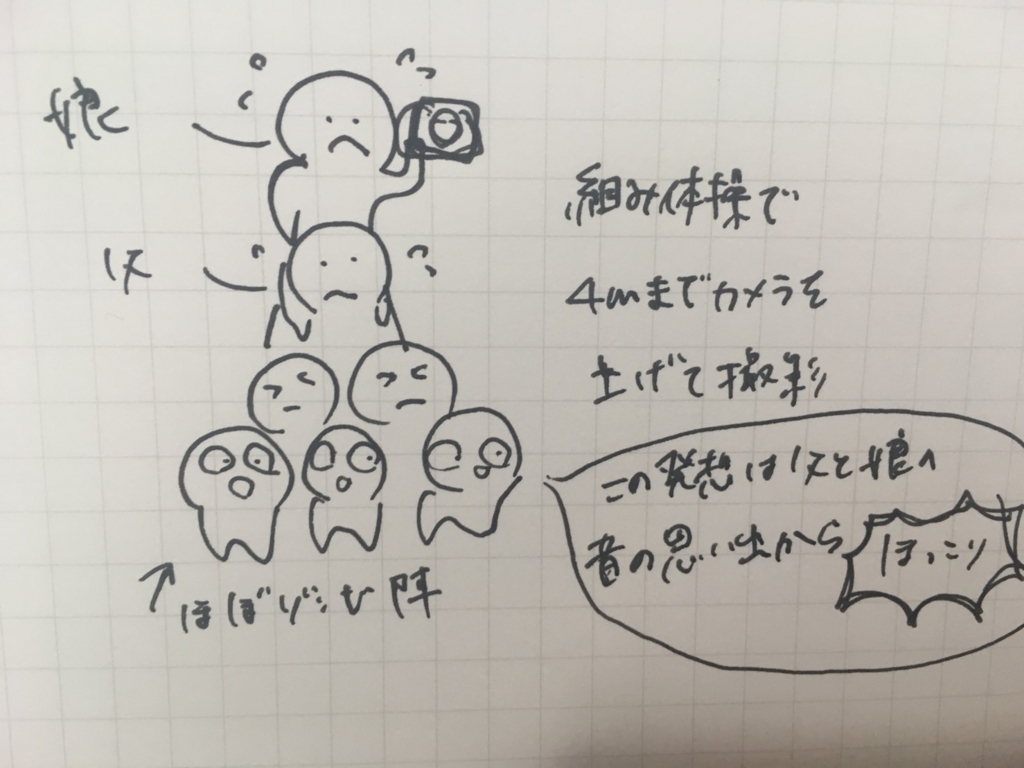 娘
父
組み体操で
4mまでカメラを
上げて撮影
この発想は父と娘の
昔の思い出から
ほっこり
ほぼ 陣